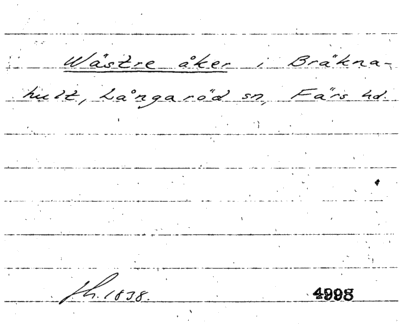 Wästre åker i Bräkna-
hult, Långaröd sn, Färs hd.
fh. 1838. 4998